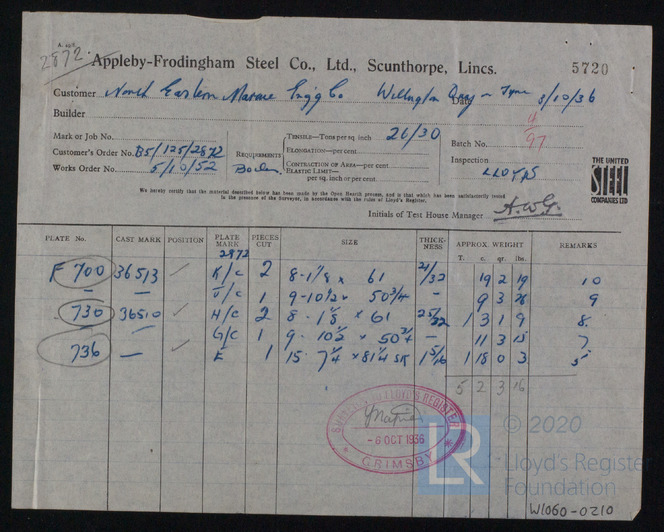 A. 298.
2872
Appleby-Frodingham Steel Co., Ltd., Scunthorpe, Lincs. 5720
Customer North Eastern Marine Engg Co Wellington Quay - Tyne Date 8/10/36
Builder
Mark or Job No. TENSILE—Tons per sq. inch 26/30 Batch No. 4/97
Customer's Order No. B5/125/2872 REQUIREMENTS ELONGATION—per cent
Works Order No. 5/10/52 Boiler CONTRACTION OF AREA—per cent Inspection LLOYDS
ELASTIC LIMIT— per sq. inch or per cent.
THE UNITED STEEL COMPANIES LTD
We hereby certify that the material described below has been made by the Open Hearth process, and is that which has been satisfactorily tested
in the presence of the Surveyor, in accordance with the rules of Lloyd's Register.
Initials of Test House Manager A.W.G.
PLATE No. CAST MARK POSITION PLATE MARK PIECES CUT SIZE THICKNESS APPROX. WEIGHT REMARKS
T. c. qr. lbs.
2872
F 700 36513 ✓ K/c 2 8-1⅛ x 61 21/32 19 2 19 10
— — J/c 1 9-10½ x 50¾ — 9 3 26 9
730 36510 ✓ H/c 2 8-1⅛ x 61 25/32 1 3 1 9 8
— G/c 1 9-10½ x 50¾ — 11 3 15 7
736 — ✓ E 1 15-7¼ x 81¼ SK 1 5/16 1 18 0 3 5
5 2 3 16
LLOYD'S REGISTER
-6 OCT 1936
GRIMSBY
LR
© 2020
Lloyd's Register
Foundation
W1060-0210